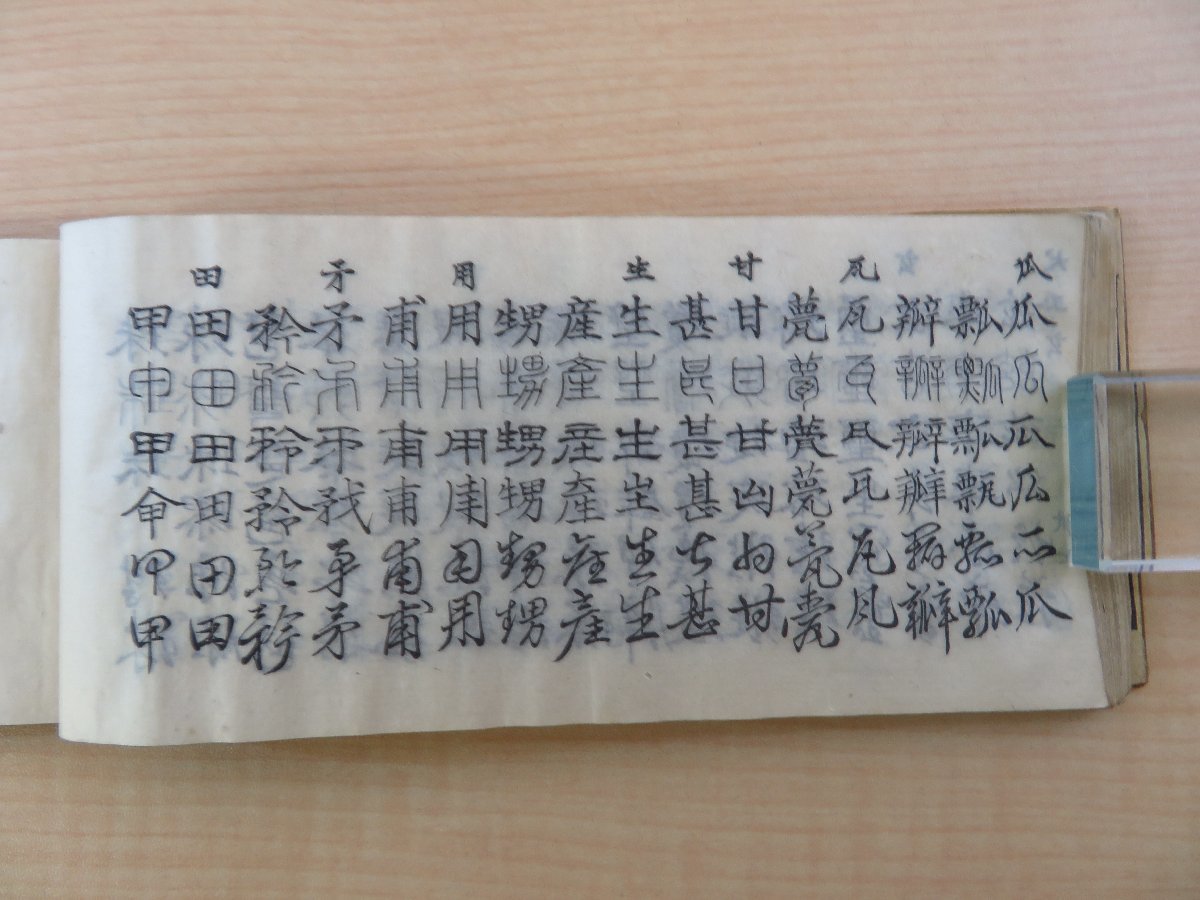 瓜瓜瓜瓜瓜瓜瓜
瓢瓢瓢瓢瓢瓢
瓣瓣瓣瓣瓣瓣
瓦瓦瓦瓦瓦瓦瓦
甍甍甍甍甍甍
甘甘甘甘甘甘甘
甚甚甚甚甚甚
生生生生生生生
産産産産産産
甥甥甥甥甥甥
用用用用用用用
甫甫甫甫甫甫
矛矛矛矛矛矛矛
矜矜矜矜矜矜
田田田田田田田
甲甲甲甲甲甲